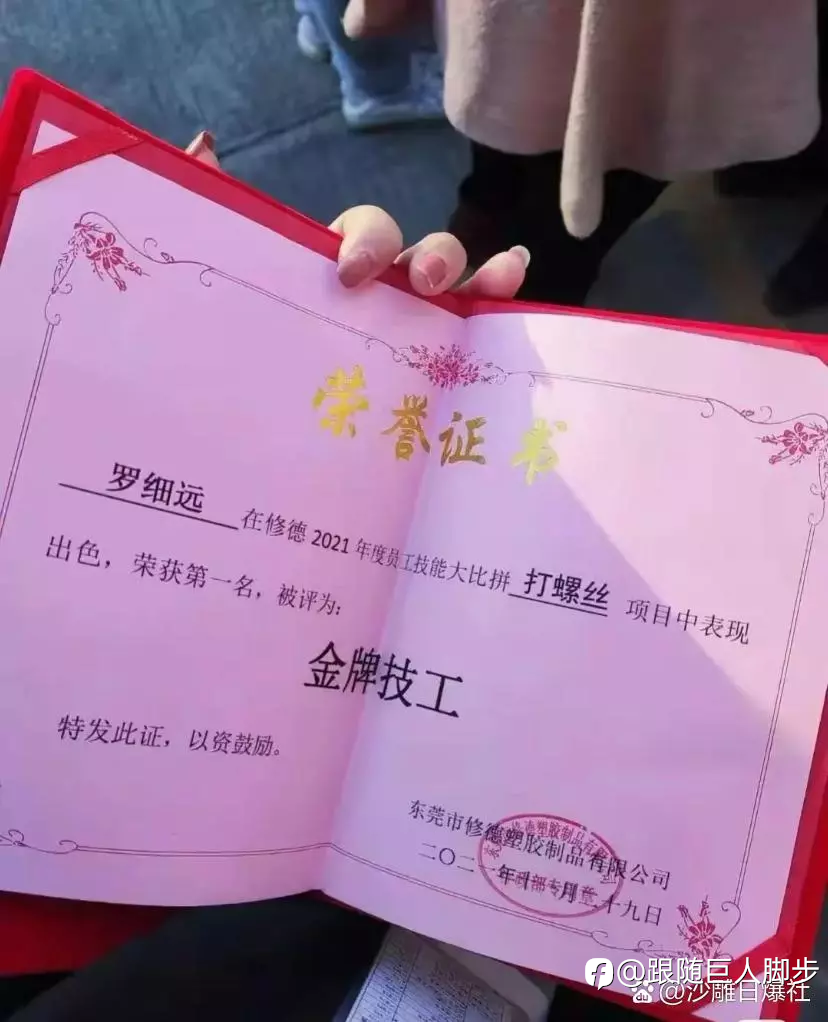 荣誉证书
罗细远 在修德2021年度员工技能大比拼 打螺丝 项目中表现
出色，荣获第一名，被评为：
金牌技工
特发此证，以资鼓励。
东莞市修德塑胶制品有限公司
二〇二一年十 月 十九日
@跟随巨人脚步
@沙雕日爆社